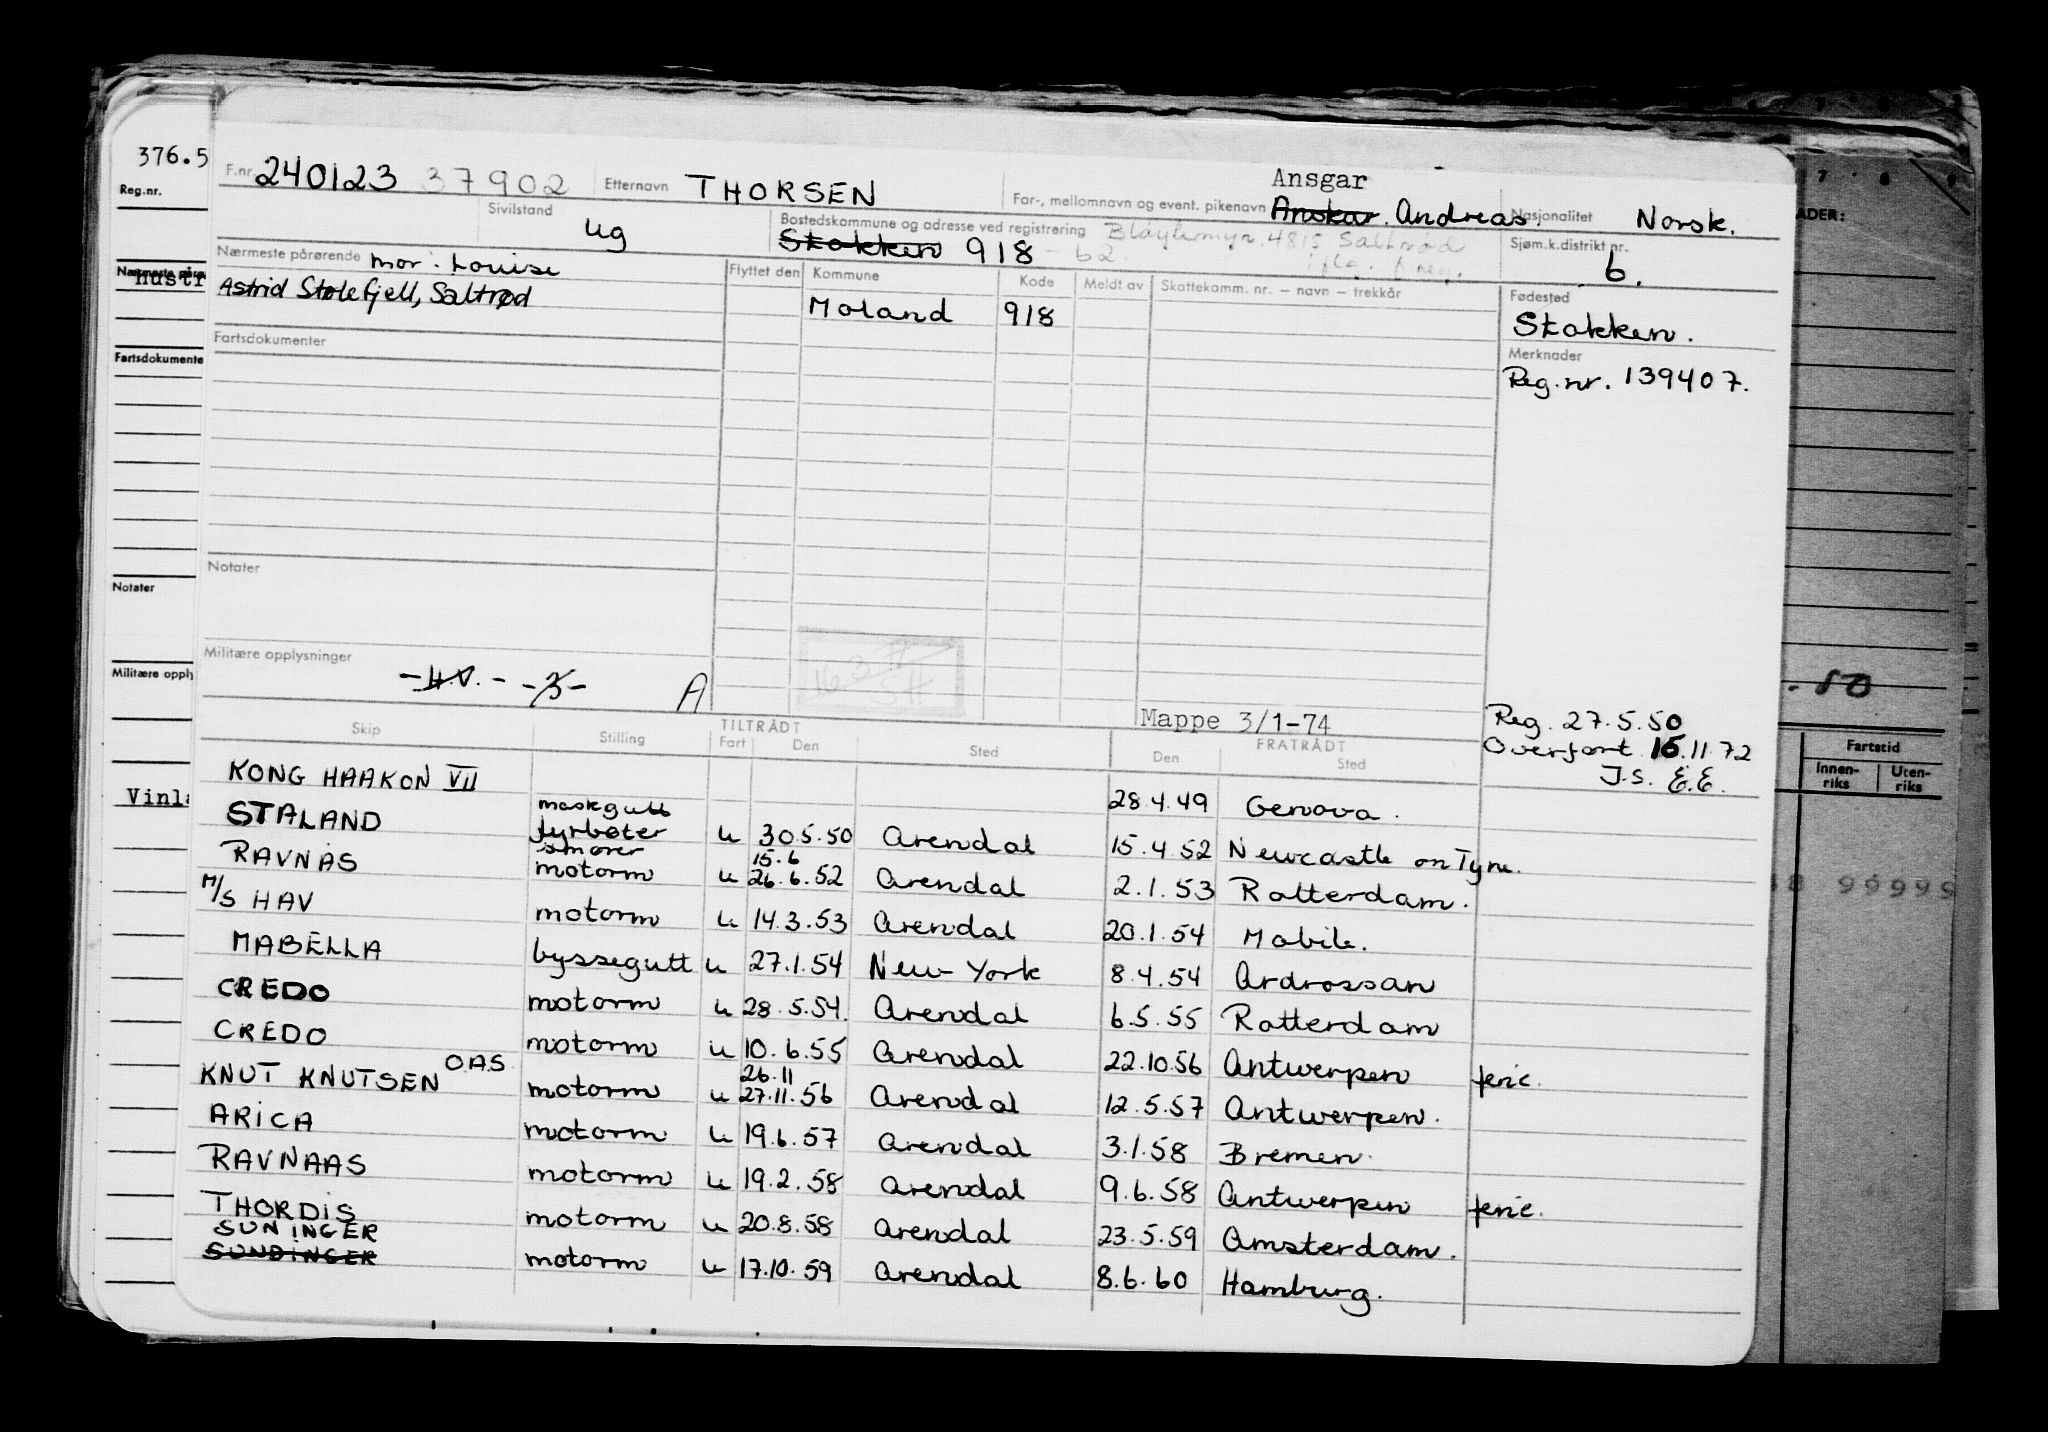 376.5
Reg.nr.
F.nr. 240123 37902 Etternavn THORSEN For-, mellomnavn og event. pikenavn Ansgar Anskar. Andreas. Nasjonalitet Norsk.
Sivilstand ug Bostedskommune og adresse ved registrering Stokken 918 - 62 4815 Saltrød Sjøm.k.distrikt nr. 6.
Nærmeste pårørende mor: Louise
Astrid Stølefjell, Saltrød
Flyttet den Kommune Kode Meldt av Skattekomm. nr. – navn – trekkår
Moland 918
Fødested
Stokken.
Merknader
Reg.nr. 139407.
Fartsdokumenter
Notater
Militære opplysninger -H.V.- -3- A
Mappe 3/1-74
Reg. 27.5.50
Overført 15.11.72
J.S. E.E.
Skip Stilling TILTRÅDT Fart Den Sted FRATRÅDT Den Sted
KONG HAAKON VII 28.4.49 Genova.
STALAND maskgutt fyrbøter u 30.5.50 Arendal 15.4.52 Newcastle on Tyne.
RAVNÅS smører motorm u 15.6 26.6.52 Arendal 2.1.53 Rotterdam.
M/S HAV motorm u 14.3.53 Arendal 20.1.54 Mobile.
MABELLA byssegutt u 27.1.54 New York 8.4.54 Ardrossan
CREDO motorm u 28.5.54. Arendal 6.5.55 Rotterdam
CREDO motorm u 10.6.55 Arendal 22.10.56 Antwerpen ferie.
KNUT KNUTSEN OAS motorm u 26.11 27.11.56 Arendal 12.5.57 Antwerpen.
ARICA motorm u 19.6.57 Arendal 3.1.58 Bremen.
RAVNAAS motorm u 19.2.58 Arendal 9.6.58 Antwerpen ferie.
THORDIS motorm u 20.8.58 Arendal 23.5.59 Amsterdam.
SUNINGER
SUNDINGER motorm u 17.10.59 Arendal 8.6.60 Hamburg.
Nærmeste påre
Hustr
Fartsdokumente
Notater
Militære opply
Vinla
ADER:
-50
Fartstid
Innen-riks Uten-riks
99999